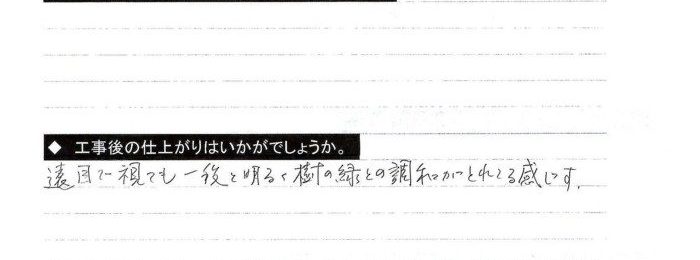 ◆ 工事後の仕上がりはいかがでしょうか。
遠目で視ても一段と明るく樹の緑との調和がとれてる感じです。